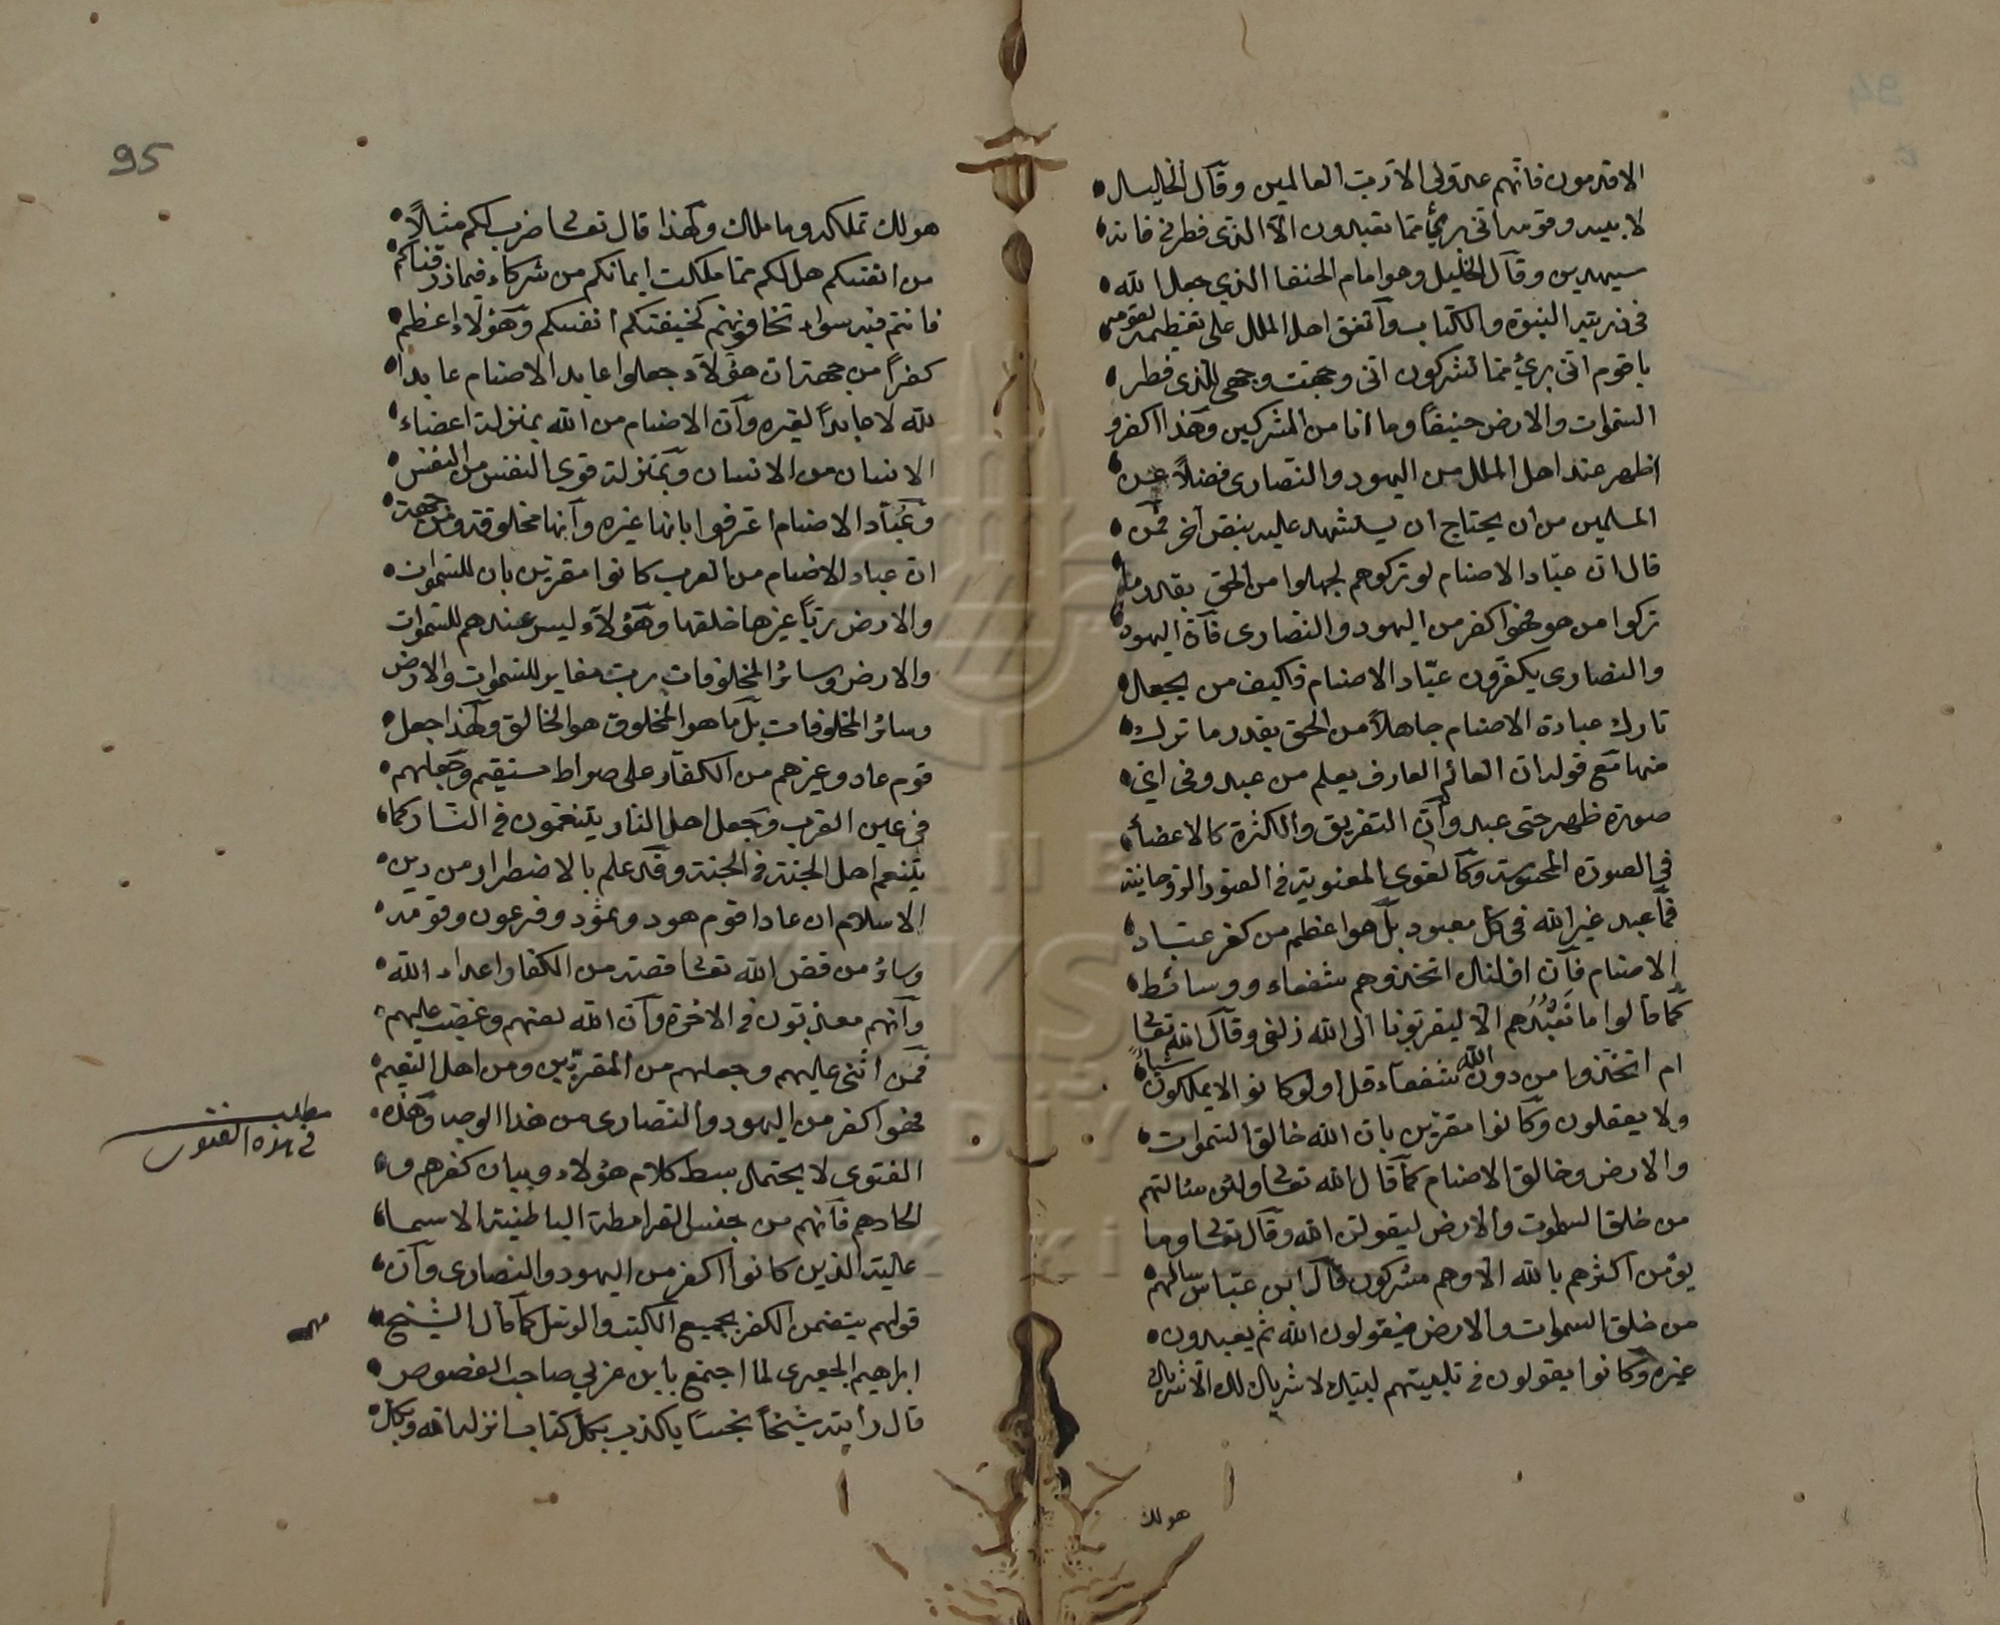 الاقدمون فانهم عدو لى الا رب العالمين وقال الخليل
لابيه وقومه انى برئ مما تعبدون الا الذى فطرنى فانه
سيهدين وقال الخليل وهو امام الحنفا الذي جعل الله
فى ذريته النبوة والكتاب واتفق اهل الملل على تعظيمه لقومه
يا قوم انى برئ مما تشركون انى وجهت وجهى للذى فطر
السموات والارض حنيفاً وما انا من المشركين وهذا اكفر و
اظهر عند اهل الملل من اليهود والنصارى فضلاً عن
المسلمين من ان يحتاج ان يستشهد عليه بنص آخر فمن
قال ان عباد الاصنام لو تركوهم لجهلوا من الحق بقدر ما
تركوا من هو فهو اكفر من اليهود والنصارى فان اليهود
والنصارى يكفرون عبّاد الاصنام فكيف من يجعل
تارك عبادة الاصنام جاهلاً من الحق بقدر ما ترك
منها مع قوله ان العالم العارف يعلم من عبد وفى اي
صورة ظهر حتى عبد وان التفريق والكثرة كالاعضأ
فى الصورة المحسوسة وكالقوى المعنوية فى الصور الروحانية
فما عبد غير الله فى كل معبود بل هو اعظم من كفر عباد
الاصنام فان اولئك اتخذوهم شفعاء ووسائط
كما قالوا ما نَعْبُدُهم الا ليقربونا الى الله زلفى وقال الله تعالى
ام اتخذوا من دون الله شفعاء قل اولو كانوا لا يملكون شيأً
ولا يعقلون وكانوا مقرين بان الله خالق السموات
والارض وخالق الاصنام كما قال الله تعالى ولئن سالتهم
من خلق السموت والارض ليقولن الله وقال تعالى وما
يؤمن اكثرهم بالله الا وهم مشركون قال ابن عباس سالهم
من خلق السموات والارض فيقولون الله ثم يعبدون
غيره وكانوا يقولون فى تلبيتهم لبيك لا شريك لك الا شريك
هو لك
95
هو لك تملكه وما ملك ولهذا قال تعالى ضرب لكم مثلاً
من انفسكم هل لكم مما ملكت ايمانكم من شركاء فيما رزقناكم
فانتم فيه سواء تخافونهم كخيفتكم انفسكم وهؤلاء اعظم
كفراً من جهة ان هؤلاء جعلوا عابد الاصنام عابدا
لله لا عابداً لغيره وان الاصنام من الله بمنزلة اعضاء
الانسان من الانسان وبمنزلة قوى النفس من النفس
وعُبّاد الاصنام اعترفوا بانها غيره وانها مخلوقة ومن جهة
ان عباد الاصنام من العرب كانوا مقرين بان للسموات
والارض رباً غيرها خلقها وهؤلاء ليس عندهم للسموات
والارض وسائر المخلوقات رب مغاير للسموات والارض
وسائر المخلوقات بل ما هو المخلوق هو الخالق ولهذا جعل
قوم عاد وغيرهم من الكفار على صراط مستقيم وجعلهم
فى عين القرب وجعل اهل النار يتنعمون فى النار كما
يتنعم اهل الجنة فى الجنة وقد علم بالاضطرار من دين
الاسلام ان عادا قوم هود وثمود وفرعون وقومه
وسائر من قص الله تعالى قصته من الكفار اعداء الله
وانهم معذبون فى الاخرة وان الله لعنهم وغضب عليهم
فمن اثنى عليهم وجعلهم من المقربين ومن اهل النعيم
فهو اكفر من اليهود والنصارى من هذا الوجه وهذه
الفتوى لا يحتمل بسط كلام هؤلاء وبيان كفرهم و
الحادهم فانهم من جنس القرامطة الباطنية الاسما
عالية الذين كانوا اكفر من اليهود والنصارى وان
قولهم يتضمن الكفر بجميع الكتب والرسل كما قال الشيخ
ابراهيم الجعبرى لما اجتمع بابن عربي صاحب الفصوص
قال رأيته شيخاً نجساً يكذب بكل كتاب انزله الله وبكل
مطلب
فى هذه الفتوى